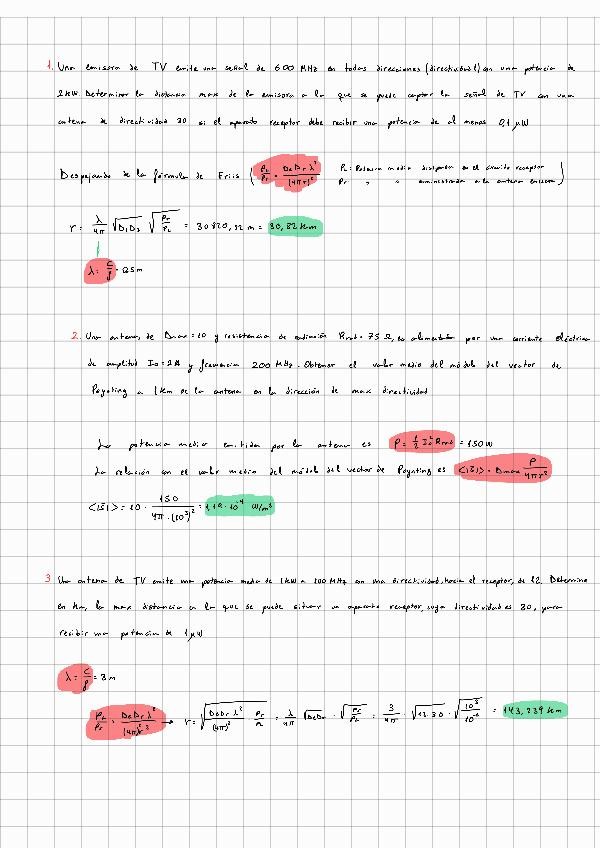 1. Una emisora de TV emite una señal de 600 MHz en todas direcciones (directividad 1) con una potencia de
2kW. Determinar la distancia max de la emisora a la que se puede captar la señal de TV con una
antena de directividad 30 si el aparato receptor debe recibir una potencia de al menos 0,1 μW
Despejando de la fórmula de Friis ( PL/Pr = DeDrλ²/(4πr)² PL: Potencia media disipada en el circuito receptor
Pr " " suministrada a la antena emisora )
r = λ/4π √D1D2 √Pr/PL = 30820,32 m = 30,82 km
λ = c/f = 0.5 m
2. Una antena, de Dmax = 10 y resistencia de radiación Rrad = 75 Ω, es alimentada por una corriente eléctrica
de amplitud I0 = 2A y frecuencia 200 MHz. Obtener el valor medio del módulo del vector de
Poynting a 1km de la antena en la dirección de max directividad
La potencia media emitida por la antena es P = 1/2 I0² Rrad = 150 W
La relación con el valor medio del módulo del vector de Poynting es <|S|> = Dmax P/4πr²
<|S|> = 10 · 150/4π·(10³)² = 1,19·10⁻⁴ W/m²
3 Una antena de TV emite una potencia media de 1kW a 100 MHz con una directividad, hacia el receptor, de 12. Determina
en km, la max distancia a la que se puede situar un aparato receptor, cuya directividad es 30, para
recibir una potencia de 1 μW
λ = c/f = 3 m
PL/Pr = DeDrλ²/(4π)²r² → r = √DeDrλ²/(4π)² · Pr/PL = λ/4π √DeDr · √Pr/PL = 3/4π · √12·30 · √10³/10⁻⁶ = 143,239 km